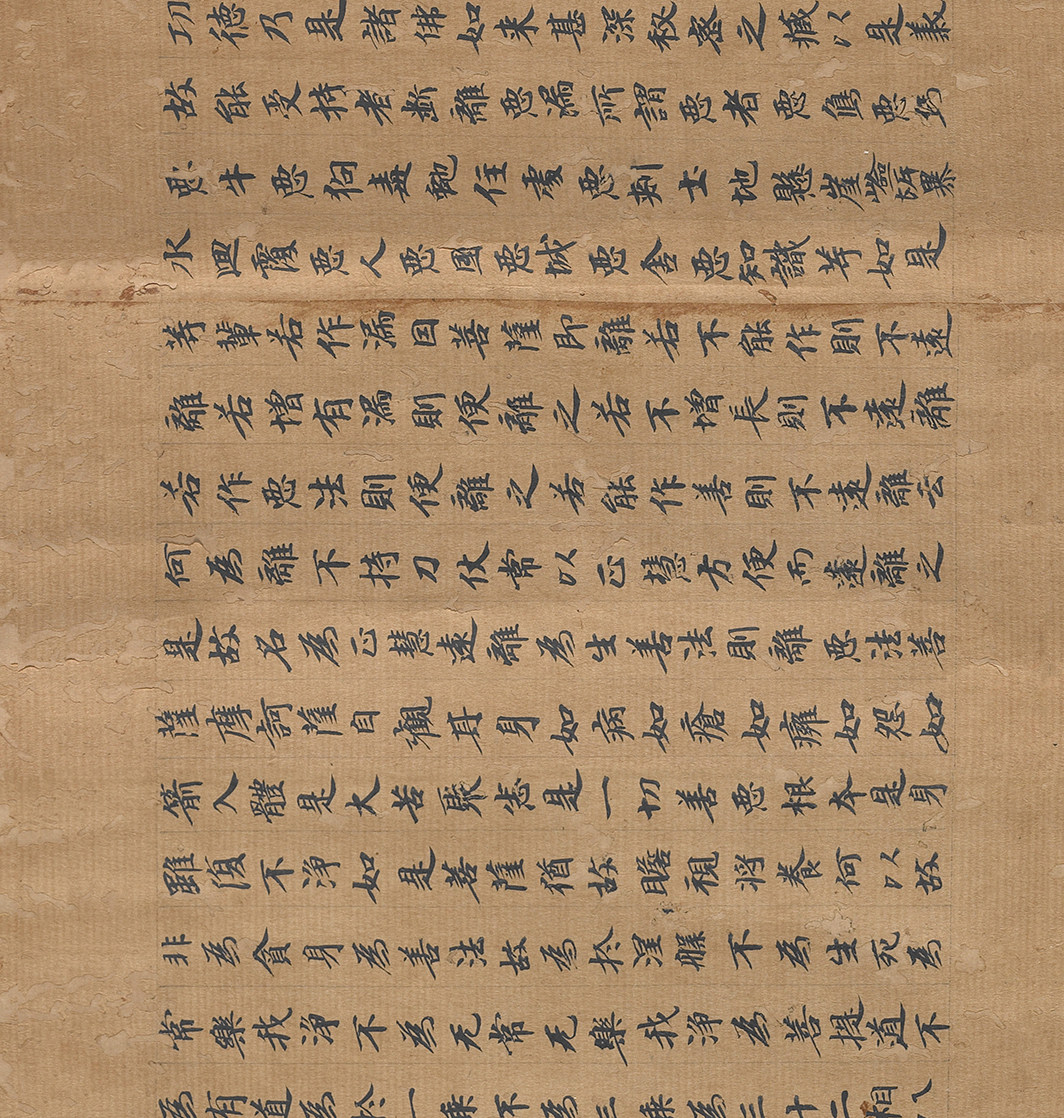 功德乃是諸佛如来甚深秘密之藏以是義
故能受持者断離惡漏所謂惡者惡象惡馬
惡牛惡狗毒虵住處惡刾土地懸崖嶮岸暴
水洄澓惡人惡國惡城惡舍惡知識等如是
等輩若作漏因菩薩即離若不能作則不遠
離若增有漏則便離之若不增長則不遠離
若作惡法則便離之若能作善則不遠離云
何為離不持刀仗常以正慧方便而遠離之
是故名為正慧遠離為生善法則離惡法善
薩摩訶薩自觀其身如病如瘡如癰如怨如
箭入體是大苦聚悉是一切善惡根本是身
雖復不淨如是菩薩猶故瞻視將養何以故
非為貪身為善法故為於涅槃不為生死為
常樂我淨不為无常无樂我淨為菩提道不
為有道為於一乗不為三乗為三十二相八